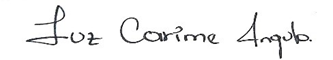 Luz Carime Angulo.